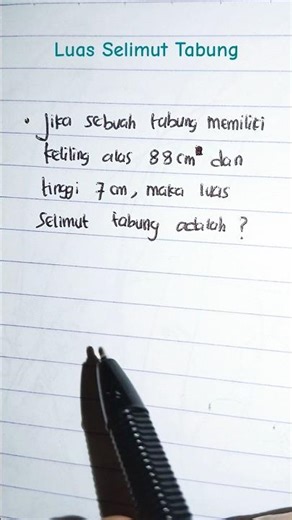 Luas Selimut Tabung
• Jika sebuah tabung memiliki
keliling alas 88 cm dan
tinggi 7 cm, maka luas
Selimut tabung adalah ?